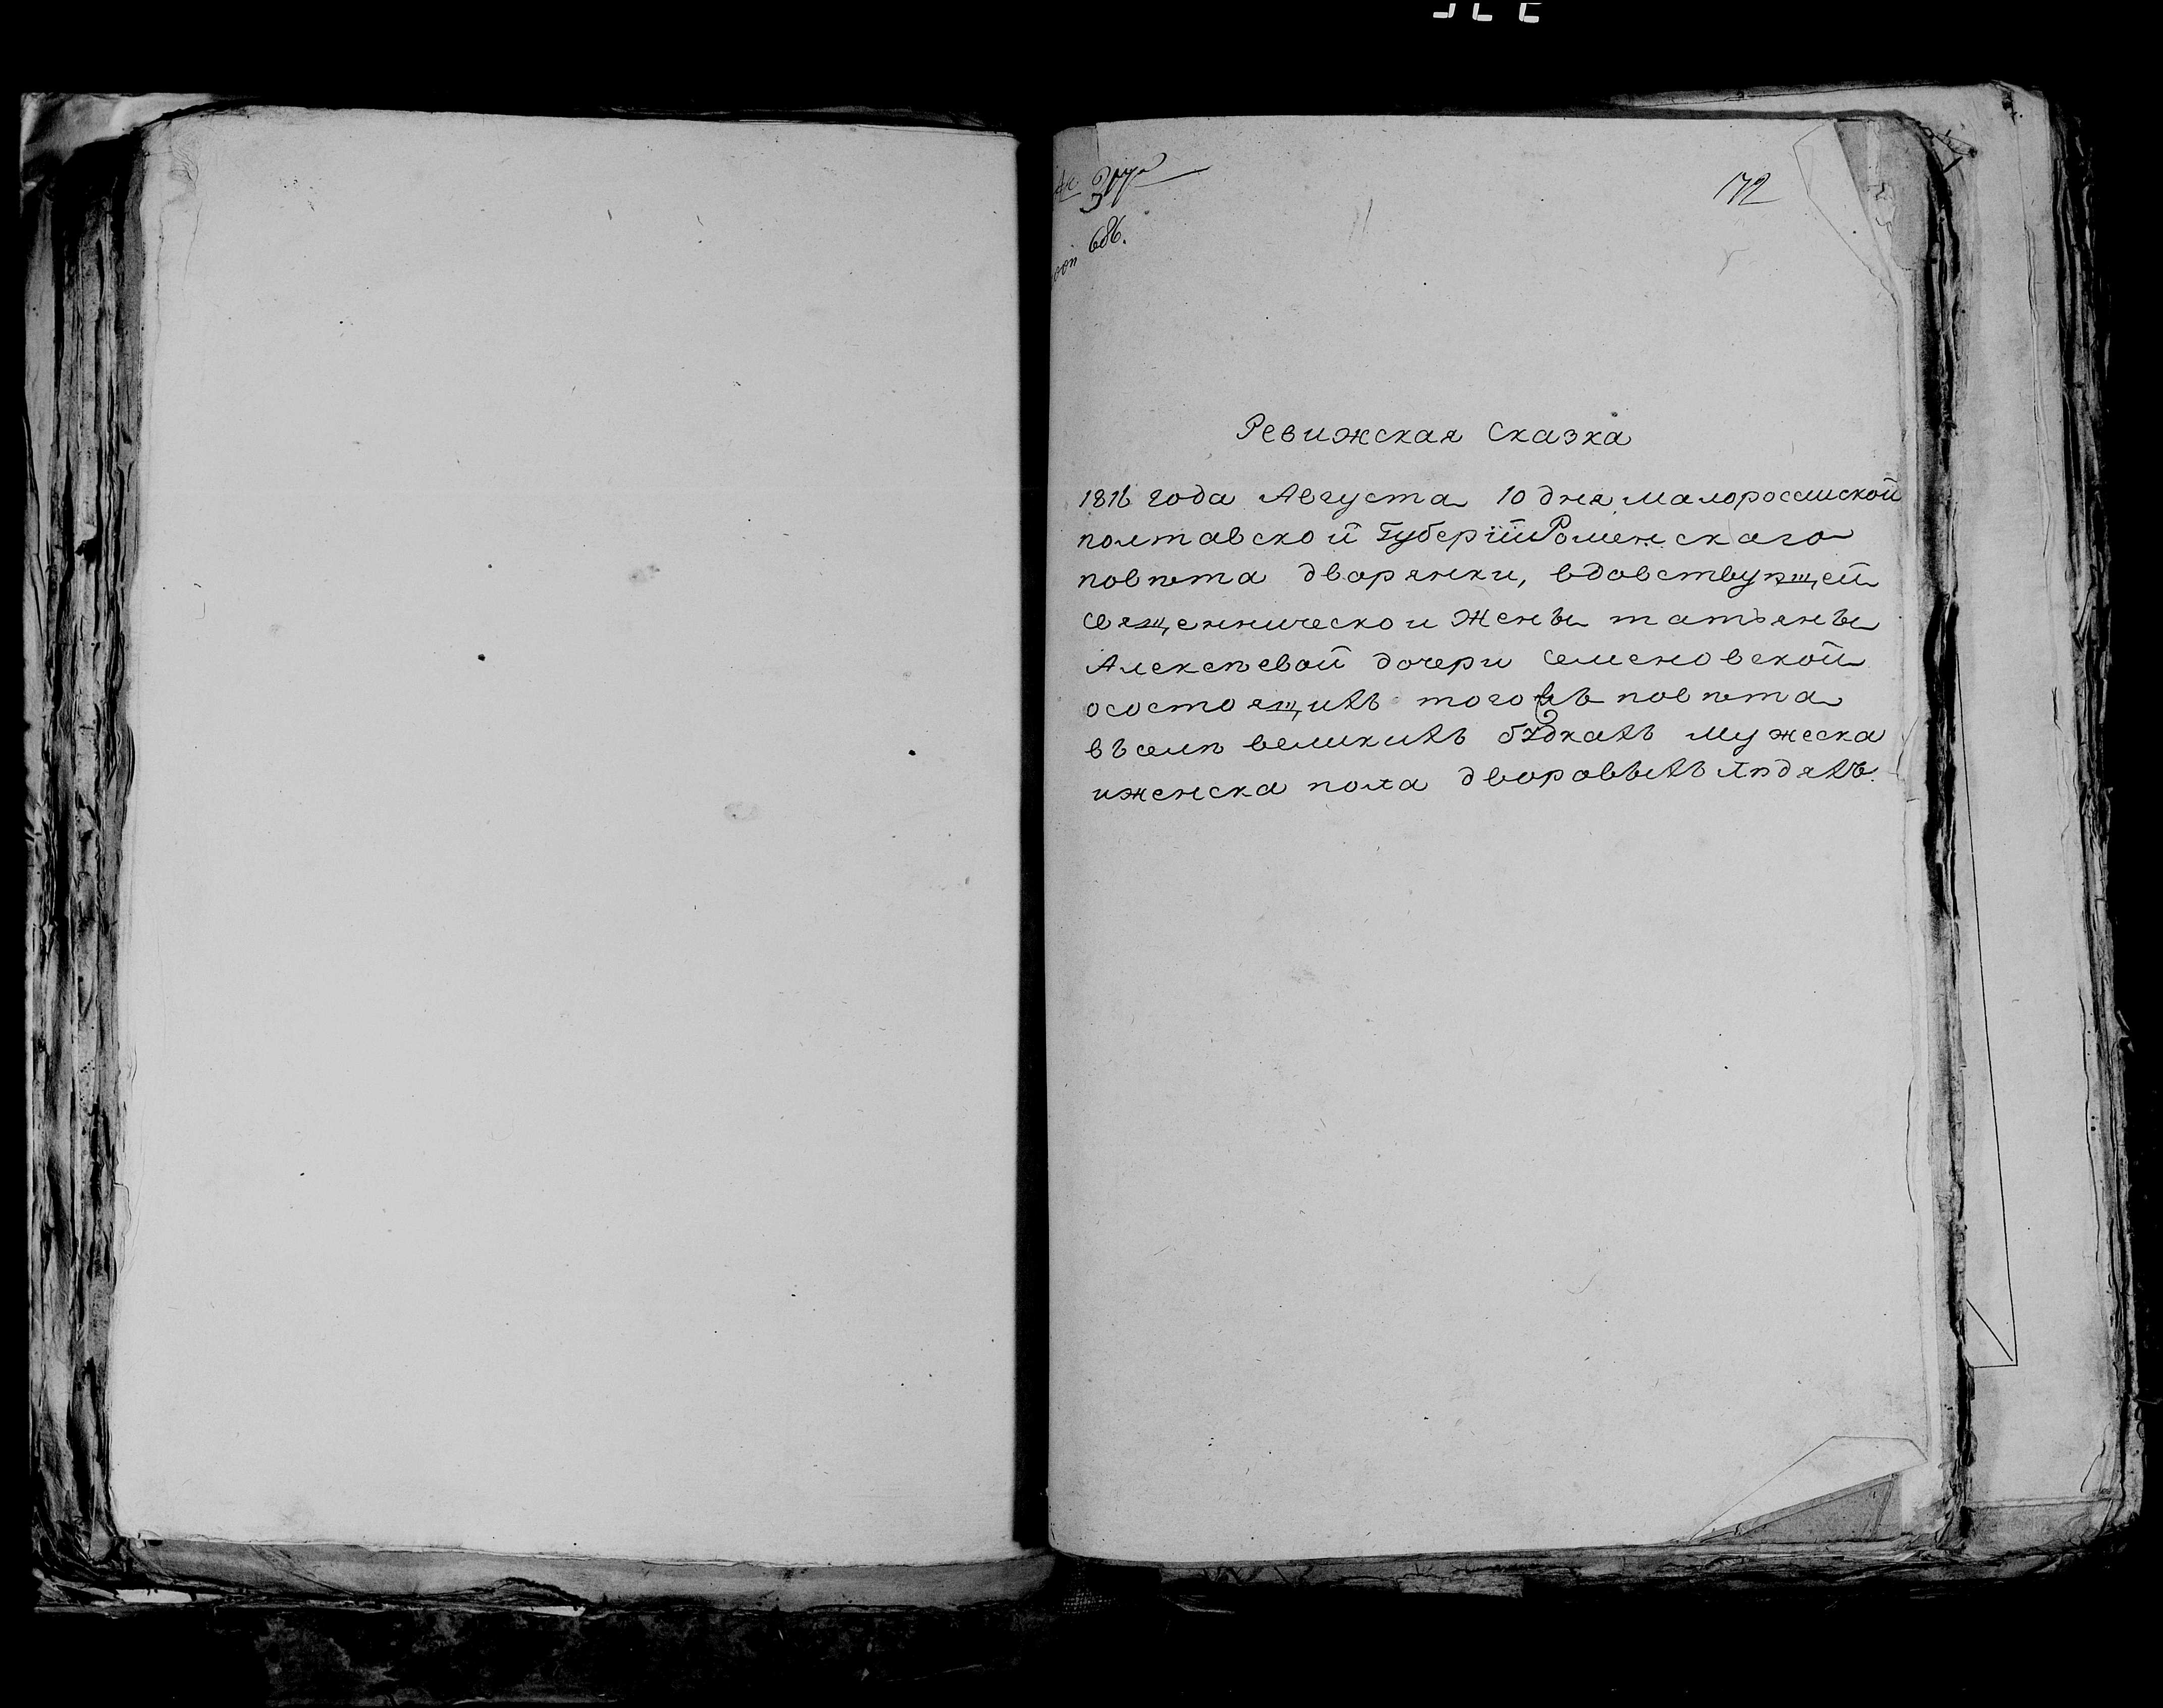 172
686.
Ревижская Сказка
1816 года Августа 10 дня малоросеииской
полтавской Губерїй Роменскаго
повѣта дворянки, вдовствующей
священническои жены татьяны
Алексѣевой дочери Семеновской
осостоящихъ тогожъ повѣта
въселѣ великихъ будкахъ мужеска
иженска пола дворовыхъ людяхъ.